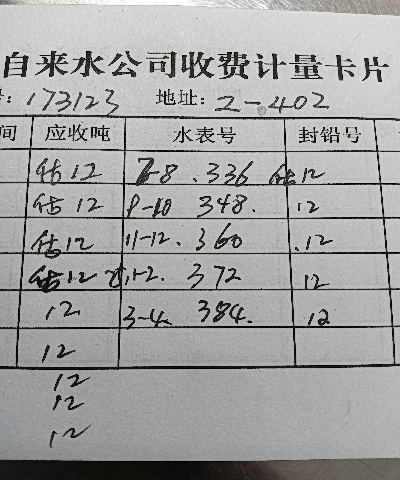 自来水公司收费计量卡片
号: 173123 地址: 2-402
间 应收吨 水表号 封铅号
估12 7-8. 336 估12
估12 9-10 348. 12
估12 11-12. 360 .12
估12 1-2. 372 12
12 3-4. 384. 12
12
12
12
12